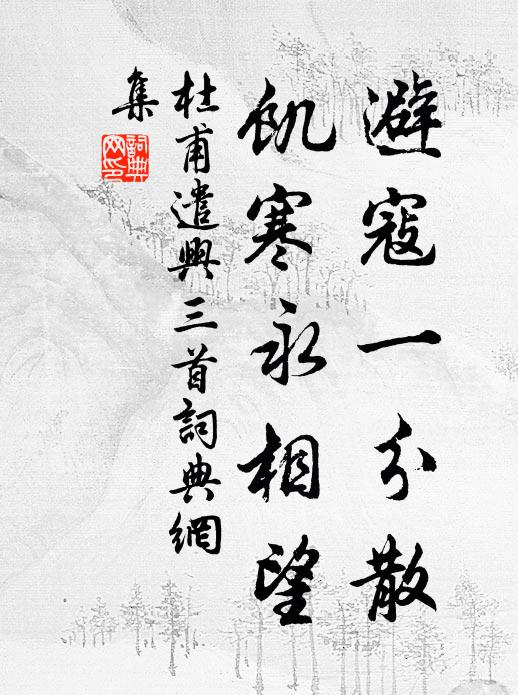 避寇一分散
飢寒永相望
杜甫遣興三首詞典網
集
詞典
网印